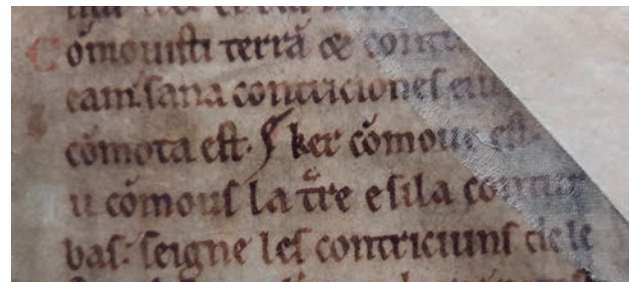 Cōmouiſti terrā & contu
eam. ſana contricioneſ eiu
cōmota eſt. ſ ker cōmoue eſt.
u cōmouſ la tr̄e e ſi la contur
baſ: ſeigne leſ contriciunſ de le